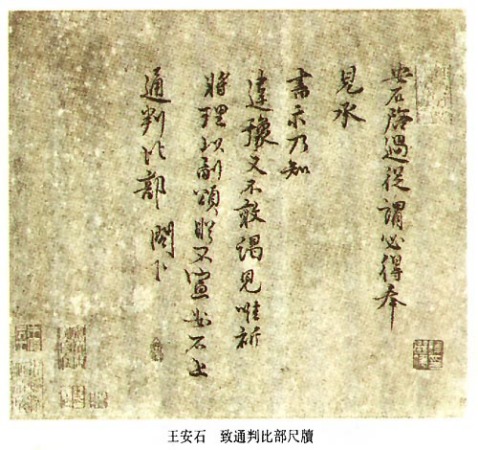 安石啓過從謂必得奉
見承
書示乃知
違豫又不敢謁見唯祈
將理以副頌眡不宣安石上
通判比部 閤下
王安石 致通判比部尺牘